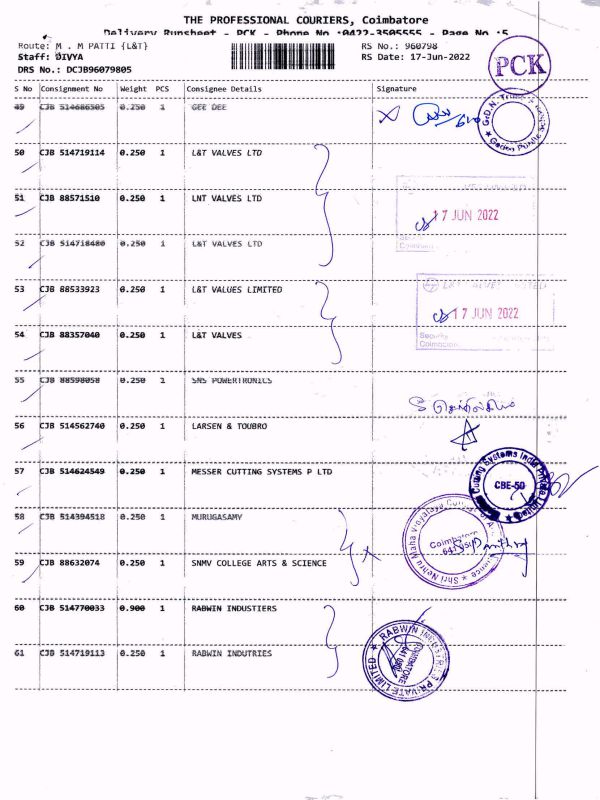 THE PROFESSIONAL COURIERS, Coimbatore
Delivery Runsheet - PCK - Phone No :0422-3505555 - Page No :5
Route: M . M PATTI {L&T} RS No.: 960798
Staff: DIVYA RS Date: 17-Jun-2022
DRS No.: DCJB96079805
PCK
S No Consignment No Weight PCS Consignee Details Signature
49 CJB 514686505 0.250 1 GEE DEE
50 CJB 514719114 0.250 1 L&T VALVES LTD
51 CJB 88571510 0.250 1 LNT VALVES LTD
17 JUN 2022
52 CJB 514718480 0.250 1 L&T VALVES LTD
53 CJB 88533923 0.250 1 L&T VALUES LIMITED
17 JUN 2022
54 CJB 88357040 0.250 1 L&T VALVES
Security
55 CJB 88598058 0.250 1 SNS POWERTRONICS
56 CJB 514562740 0.250 1 LARSEN & TOUBRO
57 CJB 514624549 0.250 1 MESSER CUTTING SYSTEMS P LTD
Cutting Systems India Private Limited
CBE-50
58 CJB 514394518 0.250 1 MURUGASAMY
59 CJB 88632074 0.250 1 SNMV COLLEGE ARTS & SCIENCE
Coimbatore
60 CJB 514770033 0.900 1 RABWIN INDUSTIERS
61 CJB 514719113 0.250 1 RABWIN INDUTRIES
RABWIN INDUSTRIES PRIVATE LIMITED
COIMBATORE